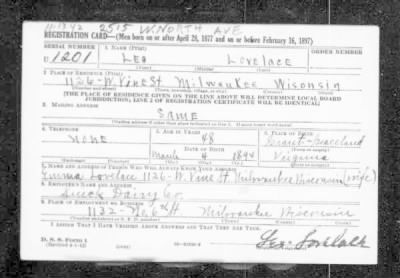 11-18-42 2515 W. NORTH AVE
REGISTRATION CARD—(Men born on or after April 28, 1877 and on or before February 16, 1897)
SERIAL NUMBER 1. NAME (Print) ORDER NUMBER
U 1201 Leo Lovelace
(First) (Middle) (Last)
2. PLACE OF RESIDENCE (Print)
1126-W. Vine St Milwaukee Wisonsin
(Number and street) (Town, township, village, or city) (County) (State)
[THE PLACE OF RESIDENCE GIVEN ON THE LINE ABOVE WILL DETERMINE LOCAL BOARD
JURISDICTION; LINE 2 OF REGISTRATION CERTIFICATE WILL BE IDENTICAL]
3. MAILING ADDRESS
SAME
[Mailing address if other than place indicated on line 2. If same insert word same]
4. TELEPHONE 5. AGE IN YEARS 6. PLACE OF BIRTH
48
NONE DATE OF BIRTH
March 4 1894 Virginia
(Mo.) (Day) (Yr.)
7. NAME AND ADDRESS OF PERSON WHO WILL ALWAYS KNOW YOUR ADDRESS
Emma Lovelace 1126-W. Vine St Milwaukee Wisconsin (wife)
8. EMPLOYER'S NAME AND ADDRESS
9. PLACE OF EMPLOYMENT OR BUSINESS
1132-No 6 St Milwaukee Wisconsin
(Number and street or R. F. D. number) (Town) (County) (State)
I AFFIRM THAT I HAVE VERIFIED ABOVE ANSWERS AND THAT THEY ARE TRUE.
D. S. S. Form 1